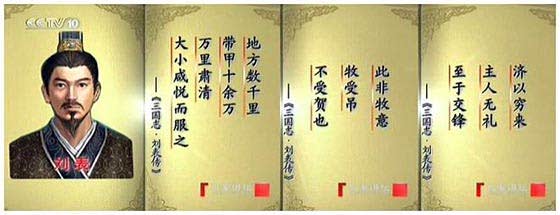 CCTV 10
刘表
地方数千里
带甲十余万
万里肃清
大小咸悦而服之
——《三国志·刘表传》
此非牧意
牧受吊
不受賀也
——《三国志·刘表传》
百家讲坛
济以穷来
主人无礼
至于交锋
——《三国志·刘表传》
百家讲坛